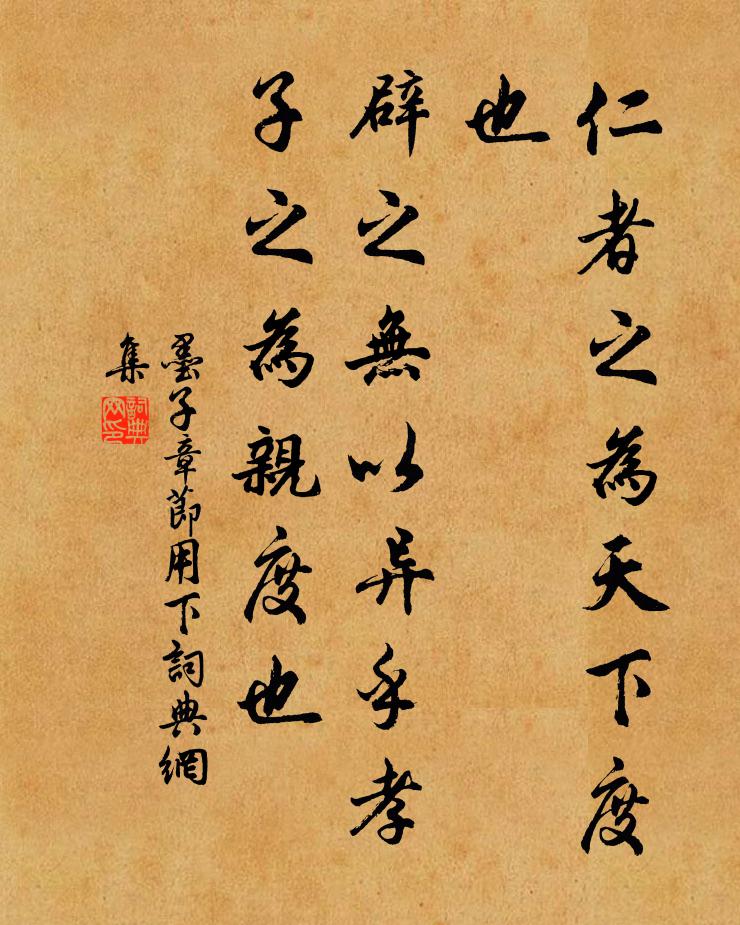 仁者之為天下度
也
辟之無以异乎孝
子之為親度也
墨子章節用下詞典網
集
詞典
网印